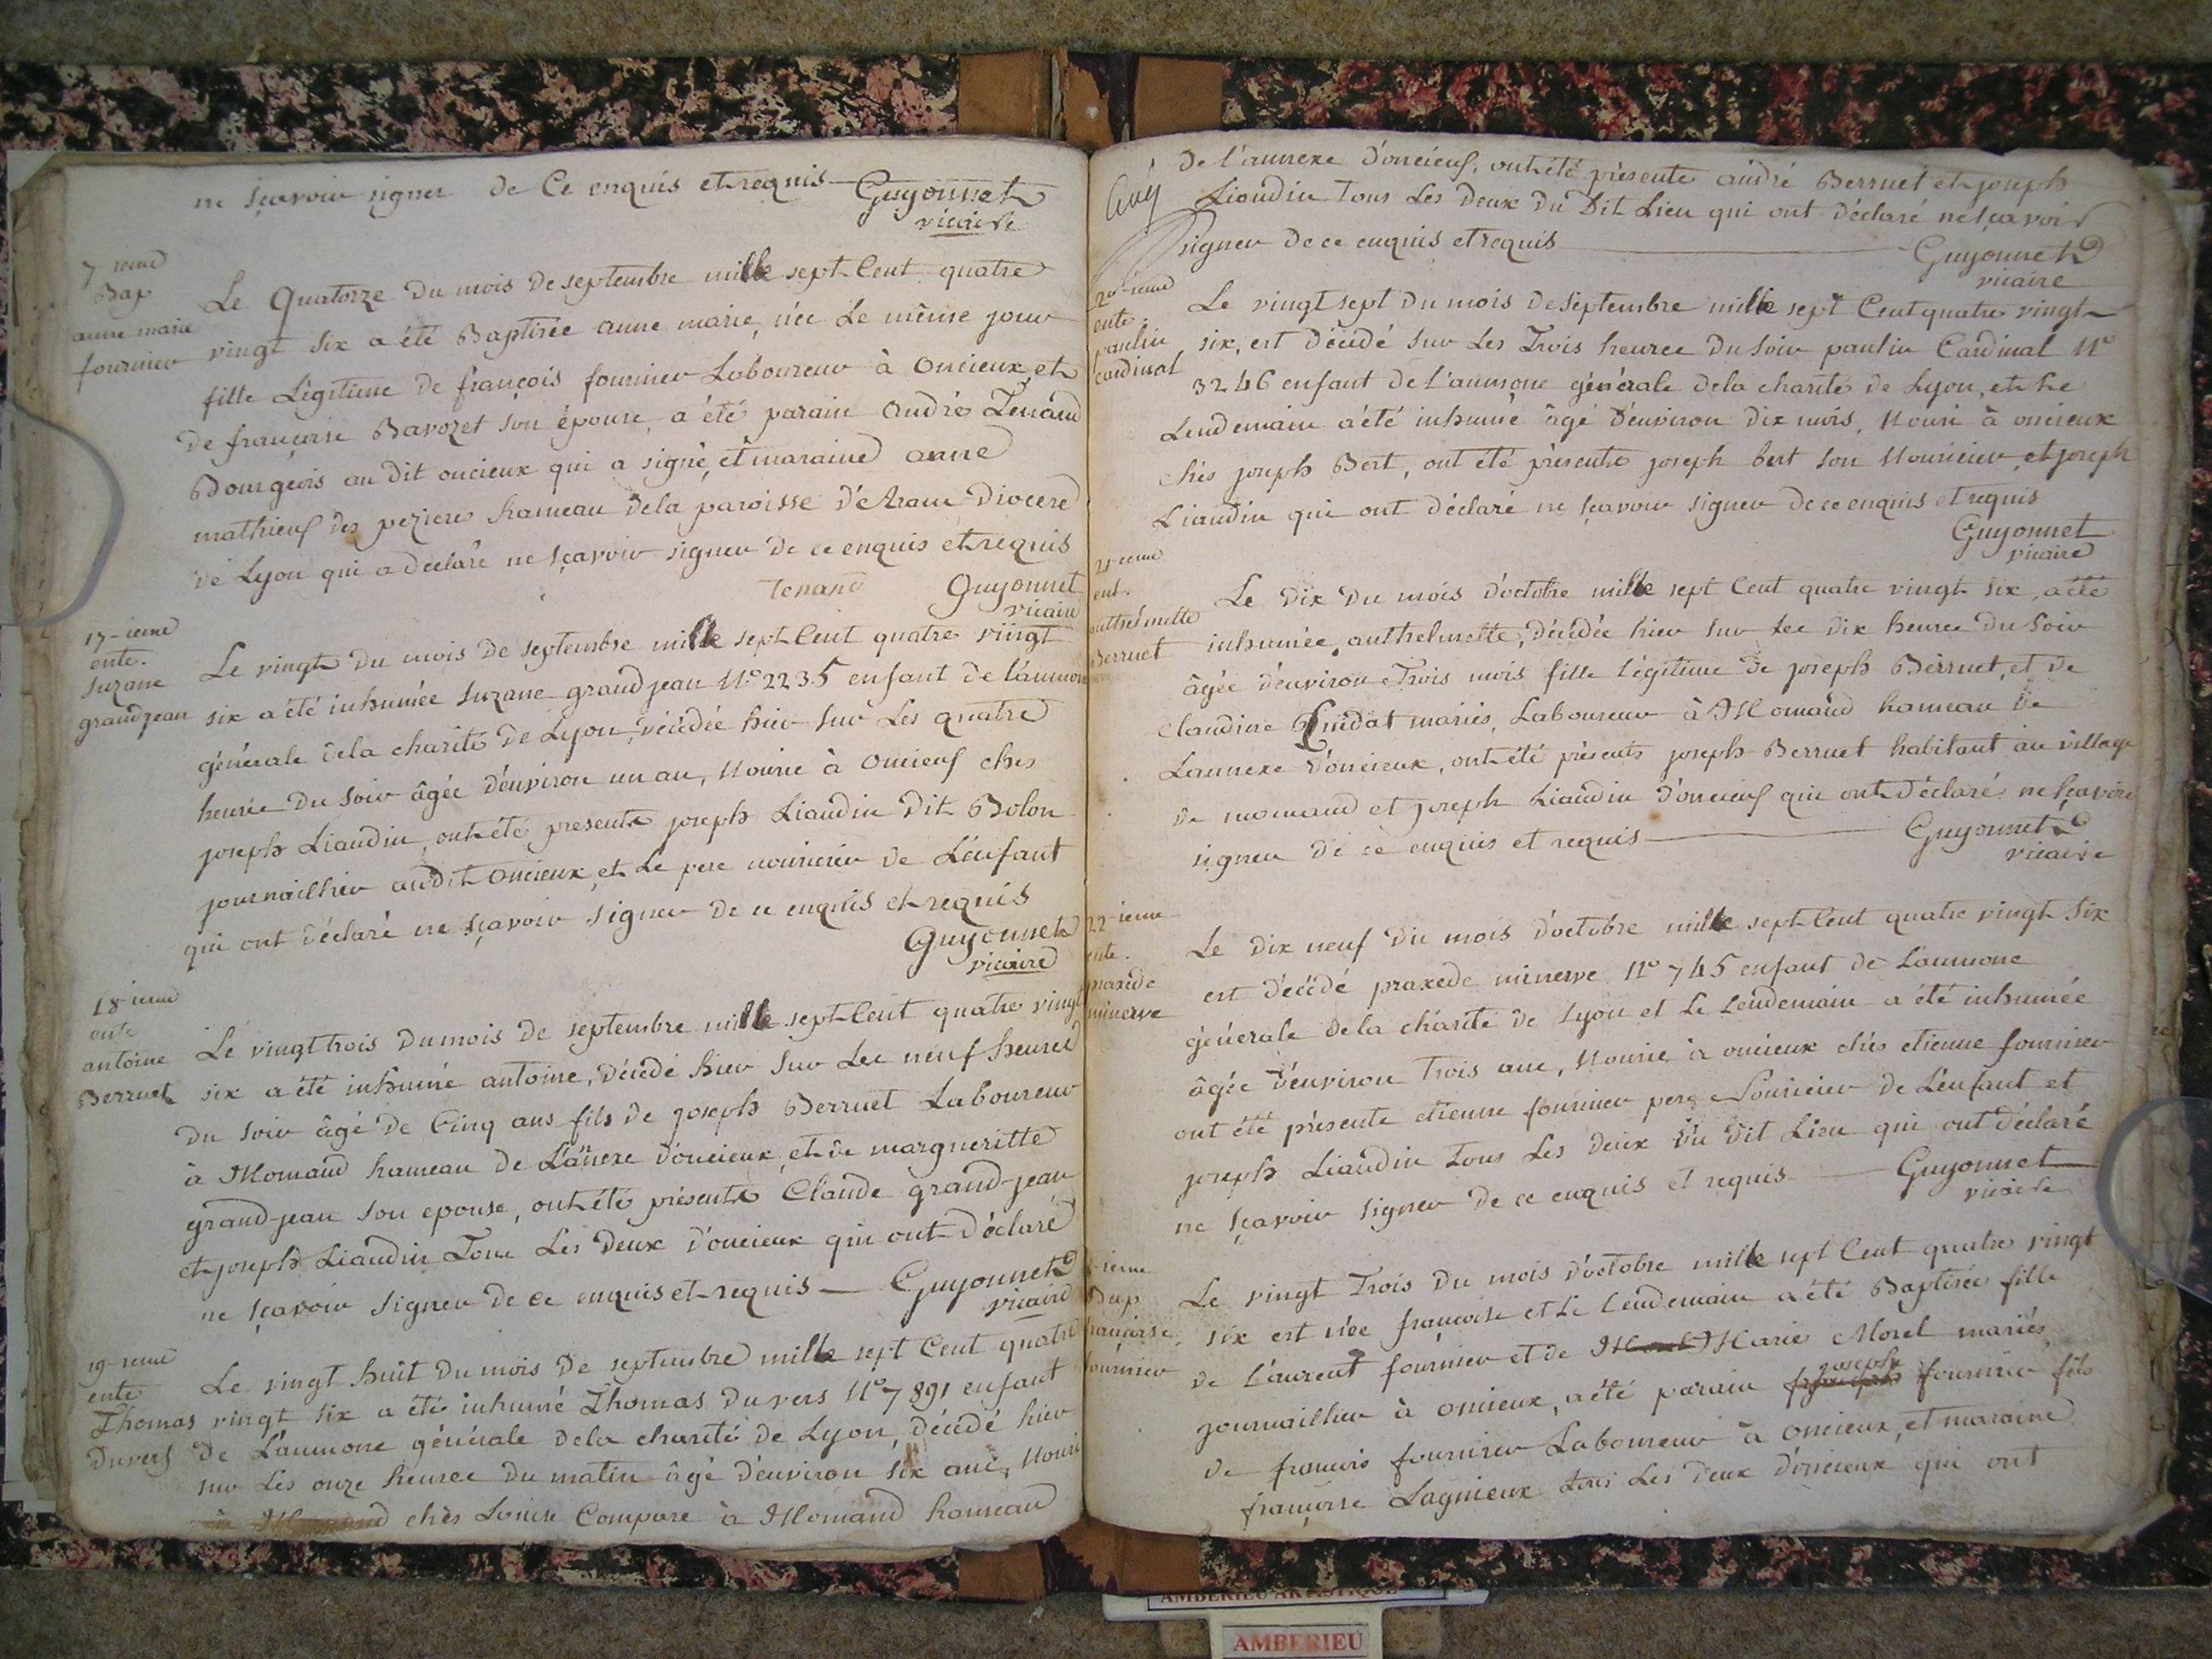 ne sçavoir signer de Ce enquis et requis Guyonnet
vicaire
7-ieme
Bap
anne marie
fournier
Le Quatorze du mois de septembre mille sept Cent quatre
vingt six a été Baptisée anne marie, née Le même jour
fille Légitime de françois fournier Laboureur à oncieux, et
de françoise Bavozet son épouse, a été parain andré Tenand
Bourgeois au dit oncieux qui a signé, et maraine anne
mathieuf des peziere hameau de la paroisse d'étrain Diocese
de Lyon qui a declaré ne sçavoir signer de ce enquis et requis
Tenand Guyonnet
vicaire
17-ieme
ente.
suzane
grandjean
Le vingt du mois de septembre mille sept Cent quatre vingt
six a été inhumée suzane grandjean N.º 2235 enfant de l'aumone
générale de la charité de Lyon, décédée hier sur Les quatre
heures du soir âgée d'environ un an, nourie à oncieuf chés
joseph Liaudin, ont été presents joseph Liaudin dit Bolon
journailhier au dit oncieux, et Le pere nouricier de L'enfant
qui ont déclaré ne sçavoir signer de ce enquis et requis
Guyonnet
vicaire
18-ieme
ente
antoine
Berruet
Le vingt trois du mois de septembre mille sept Cent quatre vingt
six a été inhumé antoine, décédé hier sur Les neuf heures
du soir âgé de Cinq ans fils de joseph Berruet Laboureur
à Momand hameau de L'annexe d'oncieux, et de margueritte
grand-jean son epouse, ont été présents Claude grand-jean
et joseph Liaudin Tous Les deux d'oncieux qui ont déclaré
ne sçavoir signer de ce enquis et requis — Guyonnet
vicaire
19-ieme
ente
Thomas
Duvers
Le vingt huit du mois de septembre mille sept Cent quatre
vingt six a été inhumé Thomas Duvers N.º 7891 enfant
de L'aumone générale de la charité de Lyon, décédé hier
sur Les onze heures du matin âgé d'environ six ans, Nouri
chés Louise Compare à Momand hameau
de l'annexe d'oncieuf, ont été présents andré Berruet et joseph
Liaudin tous Les deux du Dit Lieu qui ont déclaré ne sçavoir
signer de ce enquis et requis — Guyonnet
vicaire
20-ieme
ente.
paulin
cardinal
Le vingt sept du mois de septembre mille sept Cent quatre vingt
six, est décédé sur Les Trois heures du soir paulin Cardinal Nº
3246 enfant de l'aumone générale de la charité de Lyon, et Le
Lendemain a été inhumé âgé d'environ dix mois, Nouri à oncieux
chés joseph Bert, ont été présents joseph bert son Nouricier, et joseph
Liaudin qui ont déclaré ne sçavoir signer de ce enquis et requis
Guyonnet
vicaire
21-ieme
ent.
authelmette
Berruet
Le dix du mois d'octobre mille sept Cent quatre vingt six, a été
inhumée, anthelmette, décédée hier sur Les dix heures du soir
âgée d'environ Trois mois fille légitime de joseph Berruet, et de
Claudine Quidat mariés, Laboureur à Momand hameau de
Lannexe d'oncieux, ont été présents joseph Berruet habitant au village
de momand et joseph Liaudin d'oncieuf qui ont déclaré ne sçavoir
signer de ce enquis et requis — Guyonnet
vicaire
22-ieme
ente.
praxede
minerve
Le dix neuf du mois d'octobre mille sept Cent quatre vingt six
est décédé praxede minerve Nº 745 enfant de L'aumone
générale de la charité de Lyon et Le Lendemain a été inhumée
âgée d'environ Trois ans, Nourie à oncieux chés etienne fournier
ont été présents etienne fournier pere Nouricier de L'enfant et
joseph Liaudin tous Les deux du Dit Lieu qui ont déclaré
ne sçavoir signer de ce enquis et requis — Guyonnet
vicaire
ieme
Bap
françoise
fournier
Le vingt Trois du mois d'octobre mille sept Cent quatre vingt
six est née françoise et Le Lendemain a été Baptisée fille
de Laurent fournier et de Marie Morel mariés
journailhier à oncieux, a été parain joseph fournier fils
de francois fournier Laboureur à oncieux, et maraine
françoise Lagnieux tous Les deux d'oncieux qui ont
AMBERIEU ARTISTIQUE
AMBERIEU